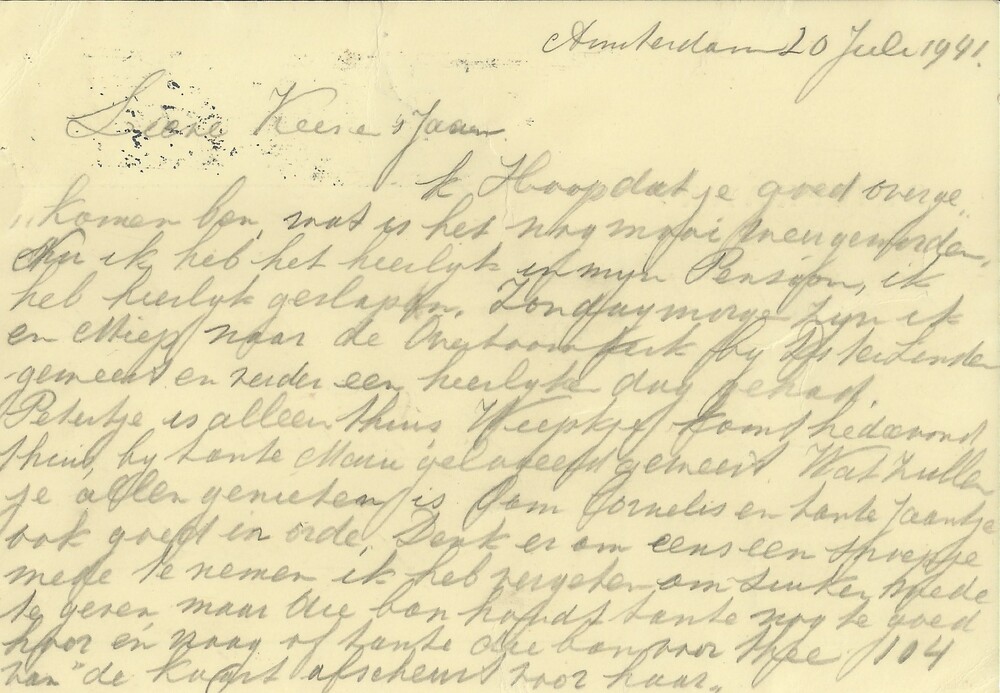 Amsterdam 20 Juli 1941.
Lieve Kees en Jaan
k Hoop dat je goed overge"
"komen ben, wat is het nog mooi weer geworden,
Nu ik heb het heerlyk in myn Pension, ik
heb heerlyk geslapen. Zondagmorge zyn ik
en Miep naar de Overtoomkerk by Ds ter Linden
geweest en verder een heerlyke dag gehad.
Petertje is alleen thuis, komt hedavond
thuis, by tante Marie gelogeerd geweest. Wat zullen
je allen genieten is Oom Cornelis en tante Jaantje
ook goed in orde. Denk er om eens een
mede te nemen ik heb vergeten om suiker mede
te geven maar die bon houdt tante nog te goed
hoor en vraag of tante die bon voor thee 104
van "de kaart afscheurt voor haar„